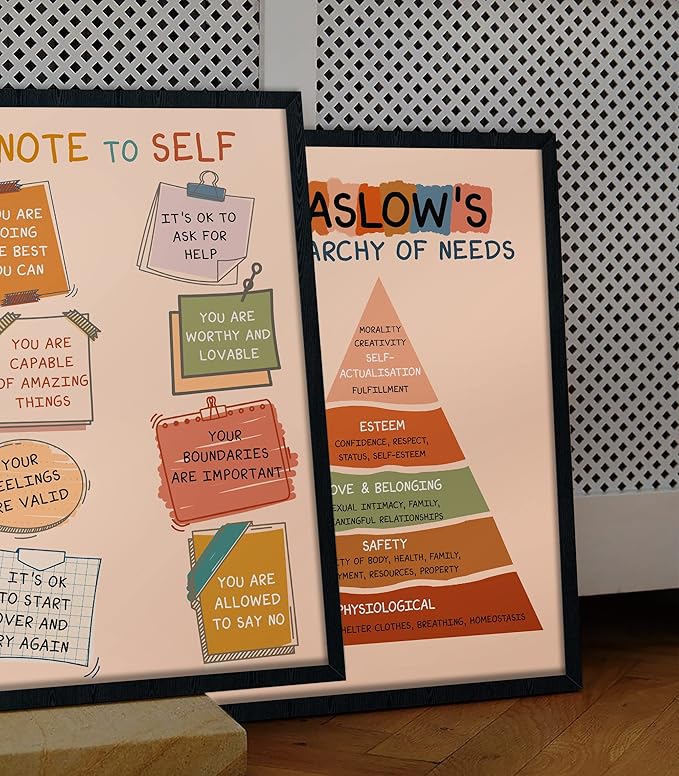 NOTE TO SELF
U ARE
OING
E BEST
OU CAN
IT'S OK TO
ASK FOR
HELP
YOU ARE
CAPABLE
OF AMAZING
THINGS
YOU ARE
WORTHY AND
LOVABLE
YOUR
EELINGS
RE VALID
YOUR
BOUNDARIES
ARE IMPORTANT
IT'S OK
TO START
OVER AND
RY AGAIN
YOU ARE
ALLOWED
TO SAY NO
ASLOW'S
ARCHY OF NEEDS
MORALITY
CREATIVITY
SELF-
ACTUALISATION
FULFILLMENT
ESTEEM
CONFIDENCE, RESPECT,
STATUS, SELF-ESTEEM
OVE & BELONGING
EXUAL INTIMACY, FAMILY,
ANINGFUL RELATIONSHIPS
SAFETY
ITY OF BODY, HEALTH, FAMILY,
YMENT, RESOURCES, PROPERTY
PHYSIOLOGICAL
HELTER CLOTHES, BREATHING, HOMEOSTASIS